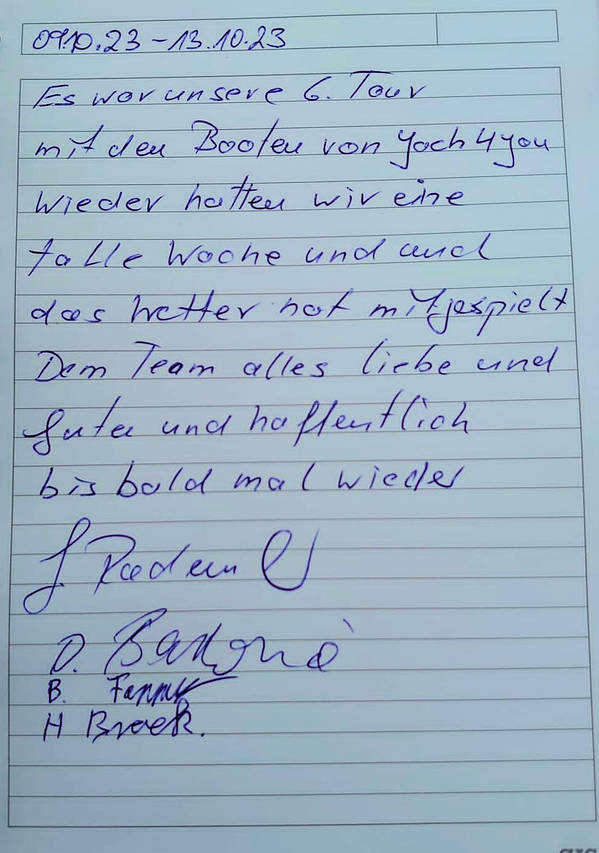 09.10.23 - 13.10.23
Es war unsere 6. Tour
mit den Booten von Yach4you
Wieder hatten wir eine
tolle Woche und auch
das Wetter hat mitgespielt
Dem Team alles liebe und
gute und hoffentlich
bis bald mal wieder
D.
B.
H Broek.